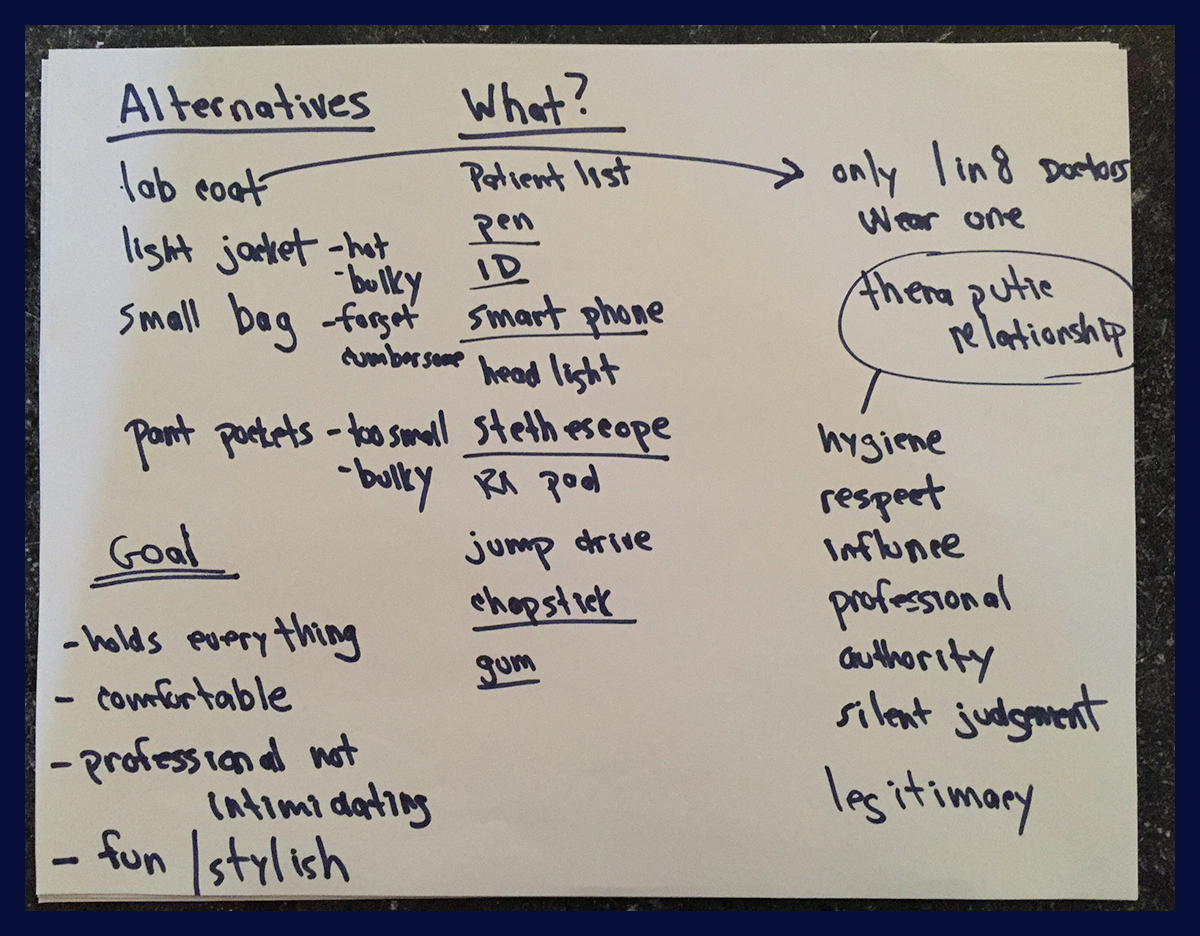 Alternatives
lab coat
light jacket - hot
- bulky
small bag - forget
cumbersome
pant pockets - too small
- bulky
Goal
- holds everything
- comfortable
- professional not
intimidating
- fun / stylish
What?
Patient list
pen
ID
smart phone
head light
stethescope
RX pad
jump drive
chapstick
gum
only 1 in 8 Doctors
Wear one
theraputic
relationship
hygiene
respect
influnce
professional
authority
silent judgement
legitimacy